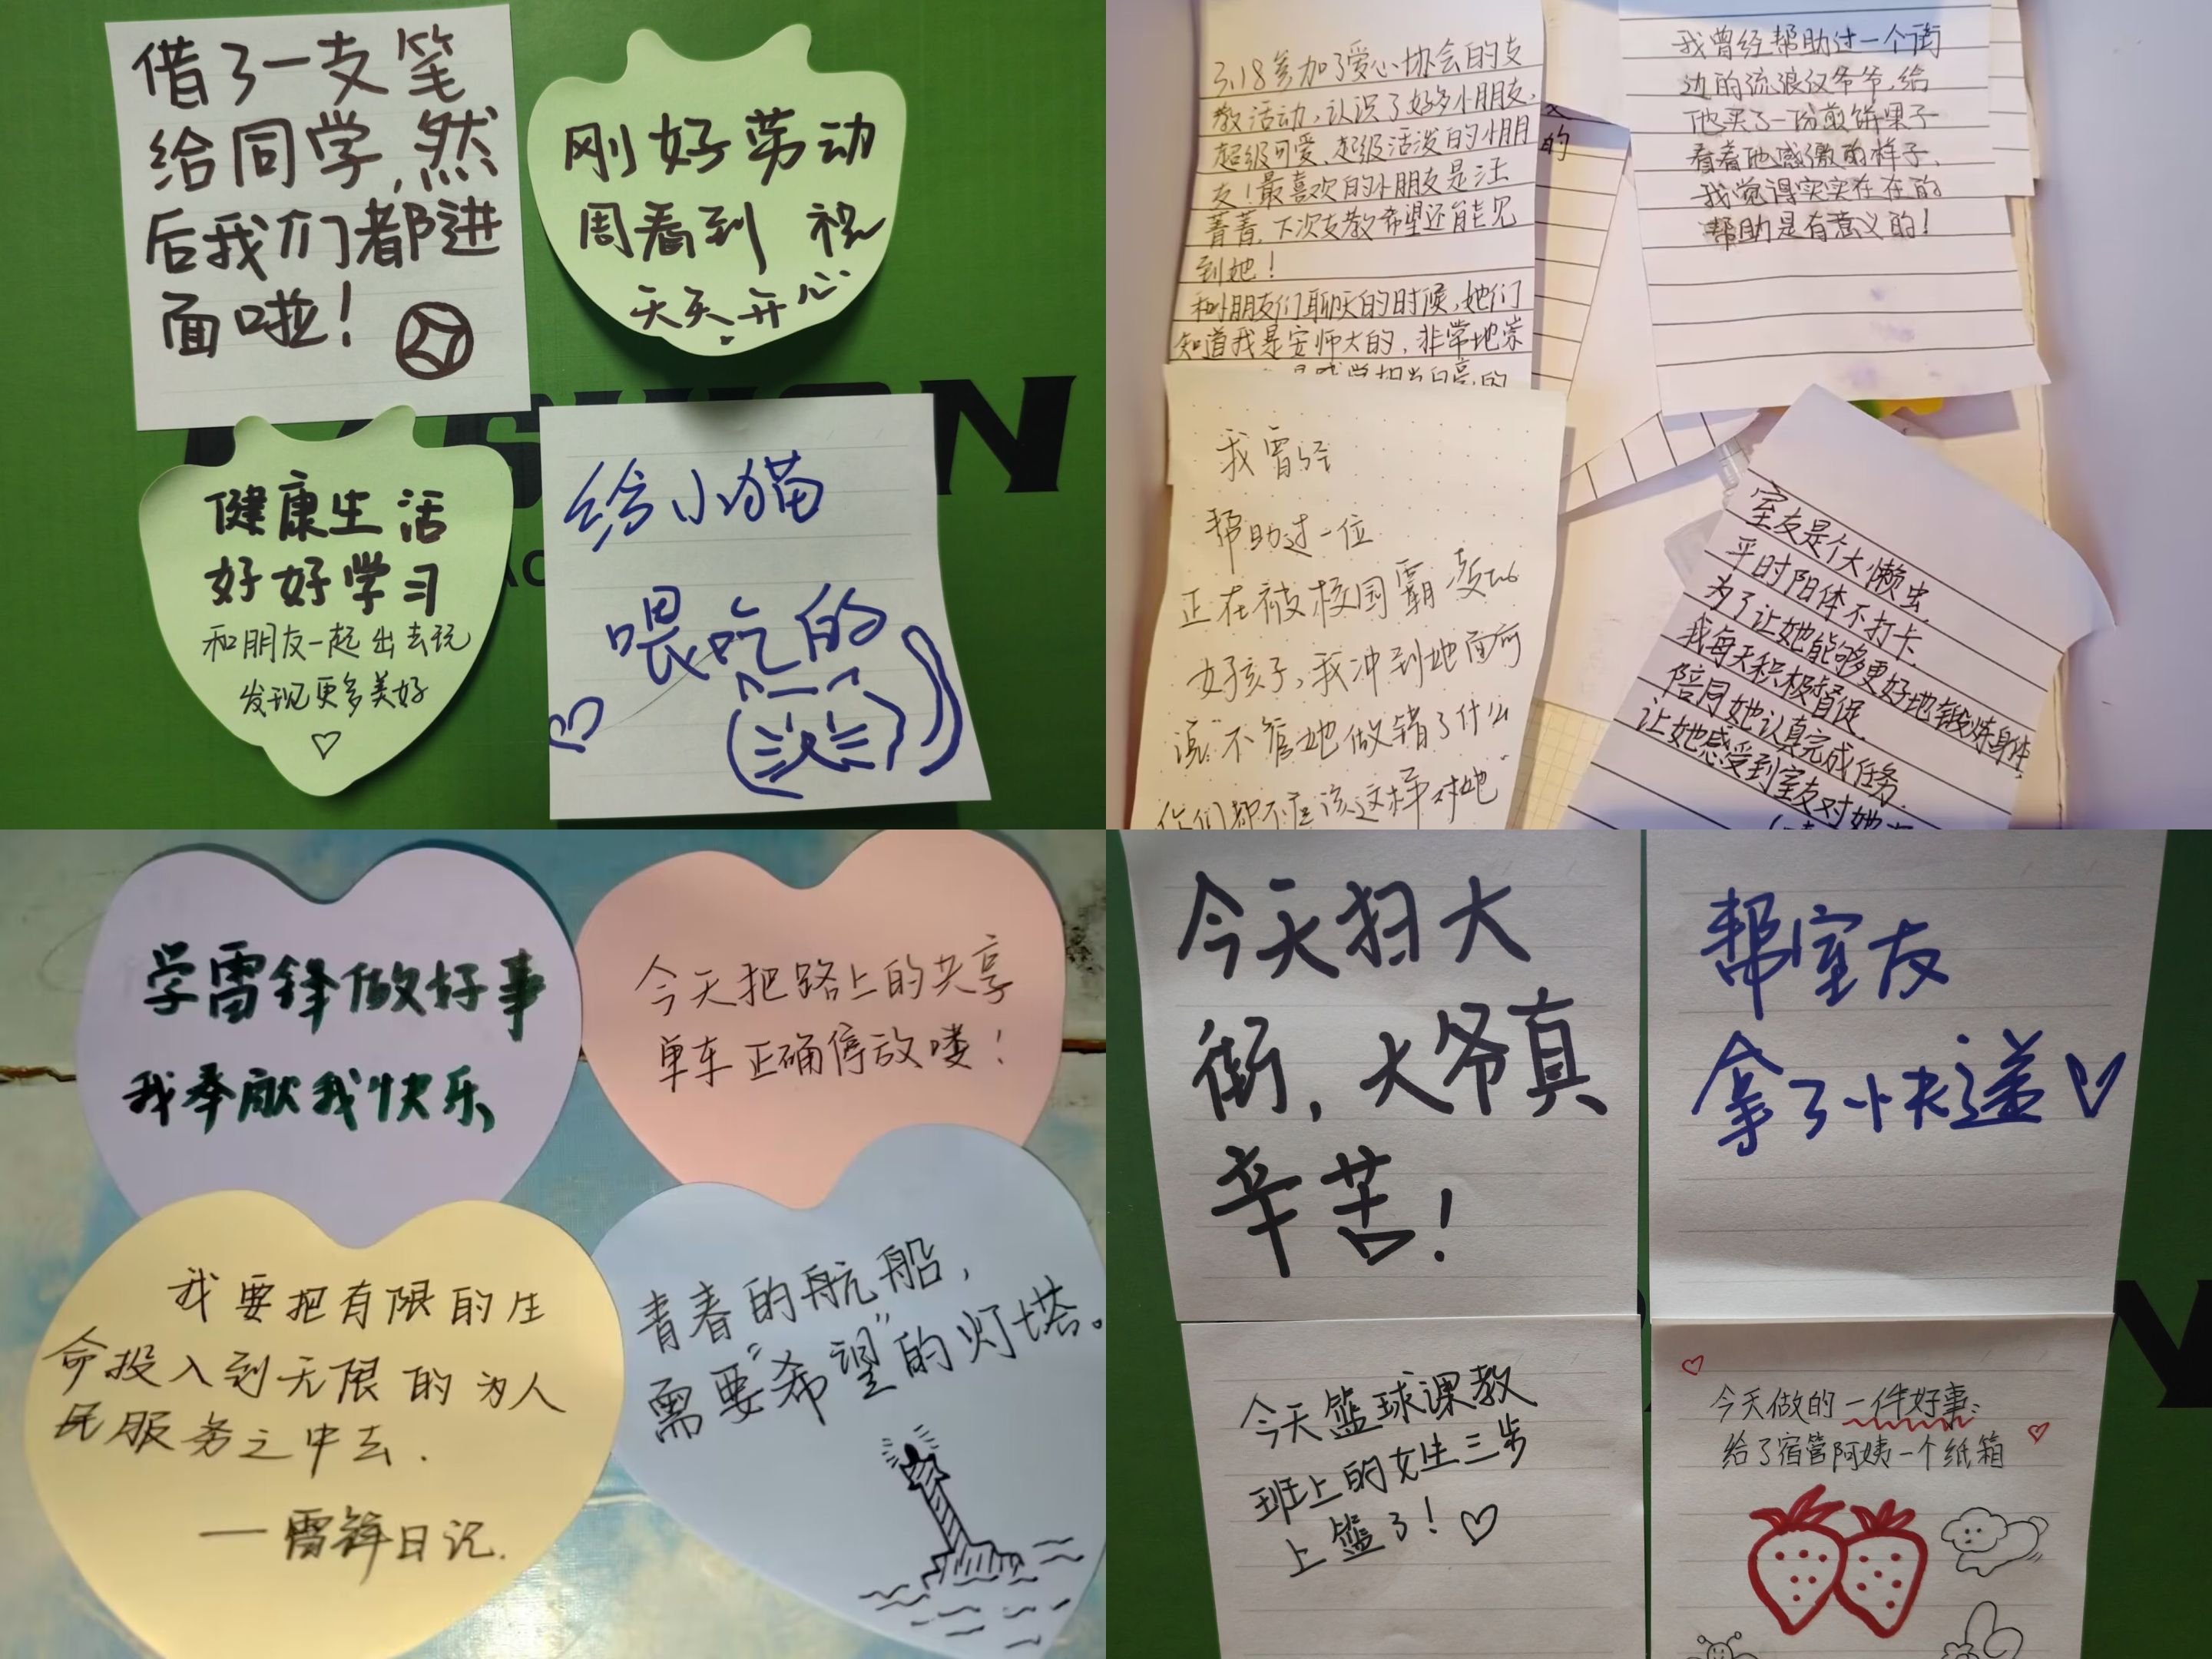 借了一支笔
给同学,然
后我们都进
面啦!
刚好劳动
周看到 祝
天天开心
健康生活
好好学习
和朋友一起出去玩
发现更多美好
给小猫
喂吃的
3.18参加了爱心协会的支
教活动,认识了好多小朋友,
超级可爱、超级活泼的小朋
友!最喜欢的小朋友是汪
菁菁,下次支教希望还能见
到她!
和小朋友们聊天的时候,她们
知道我是安师大的,非常地崇
我曾经帮助过一个街
边的流浪汉爷爷,给
他买了一份煎饼果子
看着他感激的样子,
我觉得实实在在的
帮助是有意义的!
的
我曾经
帮助过一位
正在被校园霸凌的
女孩子,我冲到她面前
说:不管她做错了什么
你们都不应该这样对她
室友是个大懒虫,
平时阳体不打卡,
为了让她能够更好地锻炼身体,
我每天积极督促,
陪同她认真完成任务,
让她感受到室友对她
学雷锋做好事
我奉献我快乐
今天把路上的共享
单车正确停放喽!
我要把有限的生
命投入到无限的为人
民服务之中去.
——雷锋日记.
青春的航船,
需要“希望”的灯塔。
今天扫大
街,大爷真
辛苦!
帮室友
拿了快递
今天篮球课教
班上的女生三步
上篮了!
今天做的一件好事:
给了宿管阿姨一个纸箱